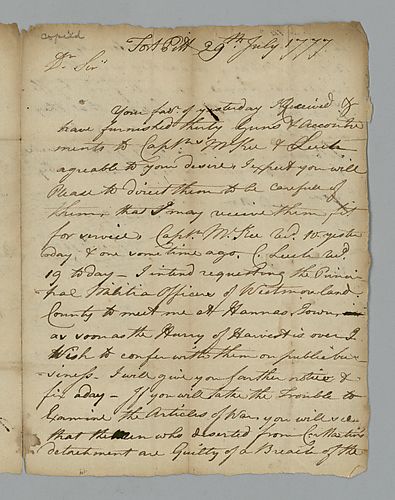 copied
Fort Pitt 29th July 1777
Dr Sir
Your favr of yesterday I Received &
have furnished thirty Guns & Accoutre
ments to Captns McKee & Leech
agreable to your desire, I expect you will
Please to direct them to be carefull of
them, that I may receive them fit
for service, Captn McKee recd 10 yester
day & one some time ago, C. Leech recd
19 today – I intend requesting the Princi
pal Militia Officers of Westmoreland
County to meet me at Hannas Town
as soon as the Hurry of Harvest is over I
Wish to confer with them on publick bu
siness – I will give you farther notice &
fix a day – If you will take the Trouble to
Examine the Articles of War you will see
that the men who deserted from Cn Martin's
detachment are Guilty of a Breach of the